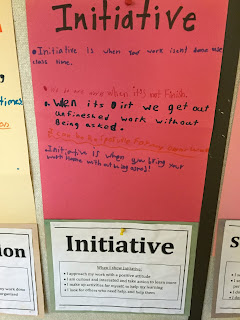 Initiative
• Initiative is when your work isent done use
class time.
we do more work when it's not finish.
• when its Dirt we get out
unfineshed work without
Being asked.
•Initiative is when you bring your
work home without being asked!
times
ion
Initiative
When I show Initiative:
• I approach my work with a positive attitude
• I am curious and interested and take action to learn more
• I make up activities for myself to help my learning
• I look for others who need help and help them
S